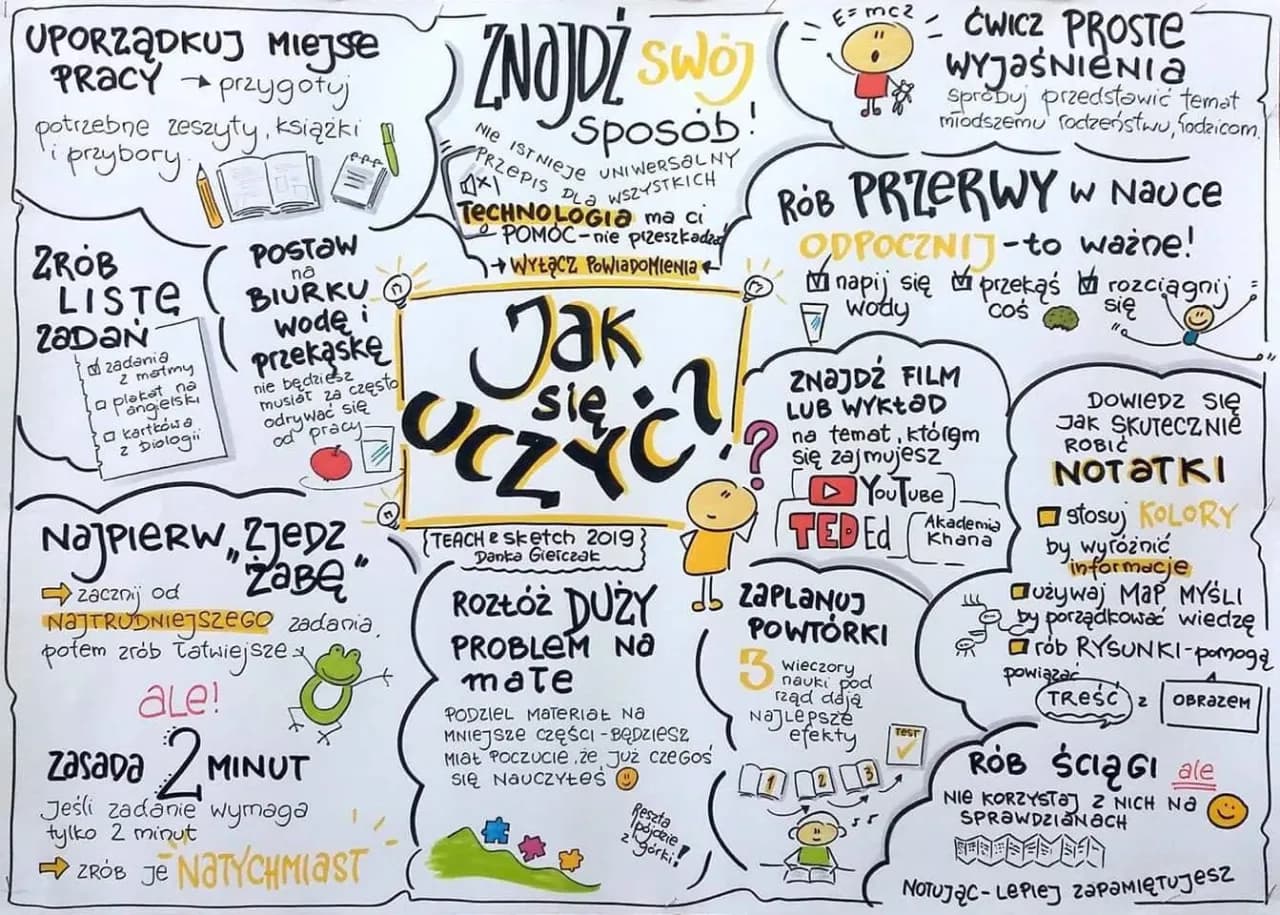 UPORZĄDKUJ MIEJSCE
PRACY → przygotuj
potrzebne zeszyty, książki
i przybory.
ZNAJDŹ SWÓJ
SPOSÓB!
NIE ISTNIEJE UNIWERSALNY
PRZEPIS DLA WSZYSTKICH
TECHNOLOGIA ma ci
POMÓC - nie przeszkadzać
→ WYŁĄCZ POWIADOMIENIA ←
E=mc2
ĆWICZ PROSTE
WYJAŚNIENIA
spróbuj przedstawić temat
młodszemu rodzeństwu, rodzicom.
RÓB PRZERWY W NAUCE
ODPOCZNIJ - to ważne!
napij się
wody
przekąś
coś
rozciągnij
się
ZRÓB
LISTĘ
ZADAŃ
zadania
z matmy
plakat na
angielski
kartkówa
z biologii
POSTAW
na
BIURKU
wodę i
przekąskę
nie będziesz
musiał za często
odrywać się
od pracy
Jak
się
UCZYĆ?
?
TEACH e sketch 2019
Danka Gierczak
ZNAJDŹ FILM
LUB WYKŁAD
na temat, którym
się zajmujesz
YouTube
TED Ed
Akademia
Khana
DOWIEDZ SIĘ
JAK SKUTECZNIE
ROBIĆ
NOTATKI
stosuj KOLORY
by wyróżnić
informacje
używaj MAP MYŚLI
by porządkować wiedzę
rób RYSUNKI - pomogą
powiązać
TREŚĆ z OBRAZEM
NAJPIERW „ZJEDZ
ŻABĘ”
zacznij od
NAJTRUDNIEJSZEGO zadania,
potem zrób łatwiejsze
ale!
ZASADA 2 MINUT
Jeśli zadanie wymaga
tylko 2 minut
ZRÓB JE NATYCHMIAST
ROZŁÓŻ DUŻY
PROBLEM NA
małe
PODZIEL MATERIAŁ NA
MNIEJSZE CZĘŚCI - BĘDZIESZ
MIAŁ POCZUCIE, ŻE JUŻ CZEGOŚ
SIĘ NAUCZYŁEŚ
Reszta
pójdzie
z górki!
ZAPLANUJ
POWTÓRKI
3 wieczory
nauki pod
rząd dają
NAJLEPSZE
efekty
TEST
1 2 3
RÓB ŚCIĄGI ale
NIE KORZYSTAJ Z NICH NA
SPRAWDZIANACH
NOTUJĄC - LEPIEJ ZAPAMIĘTUJESZ